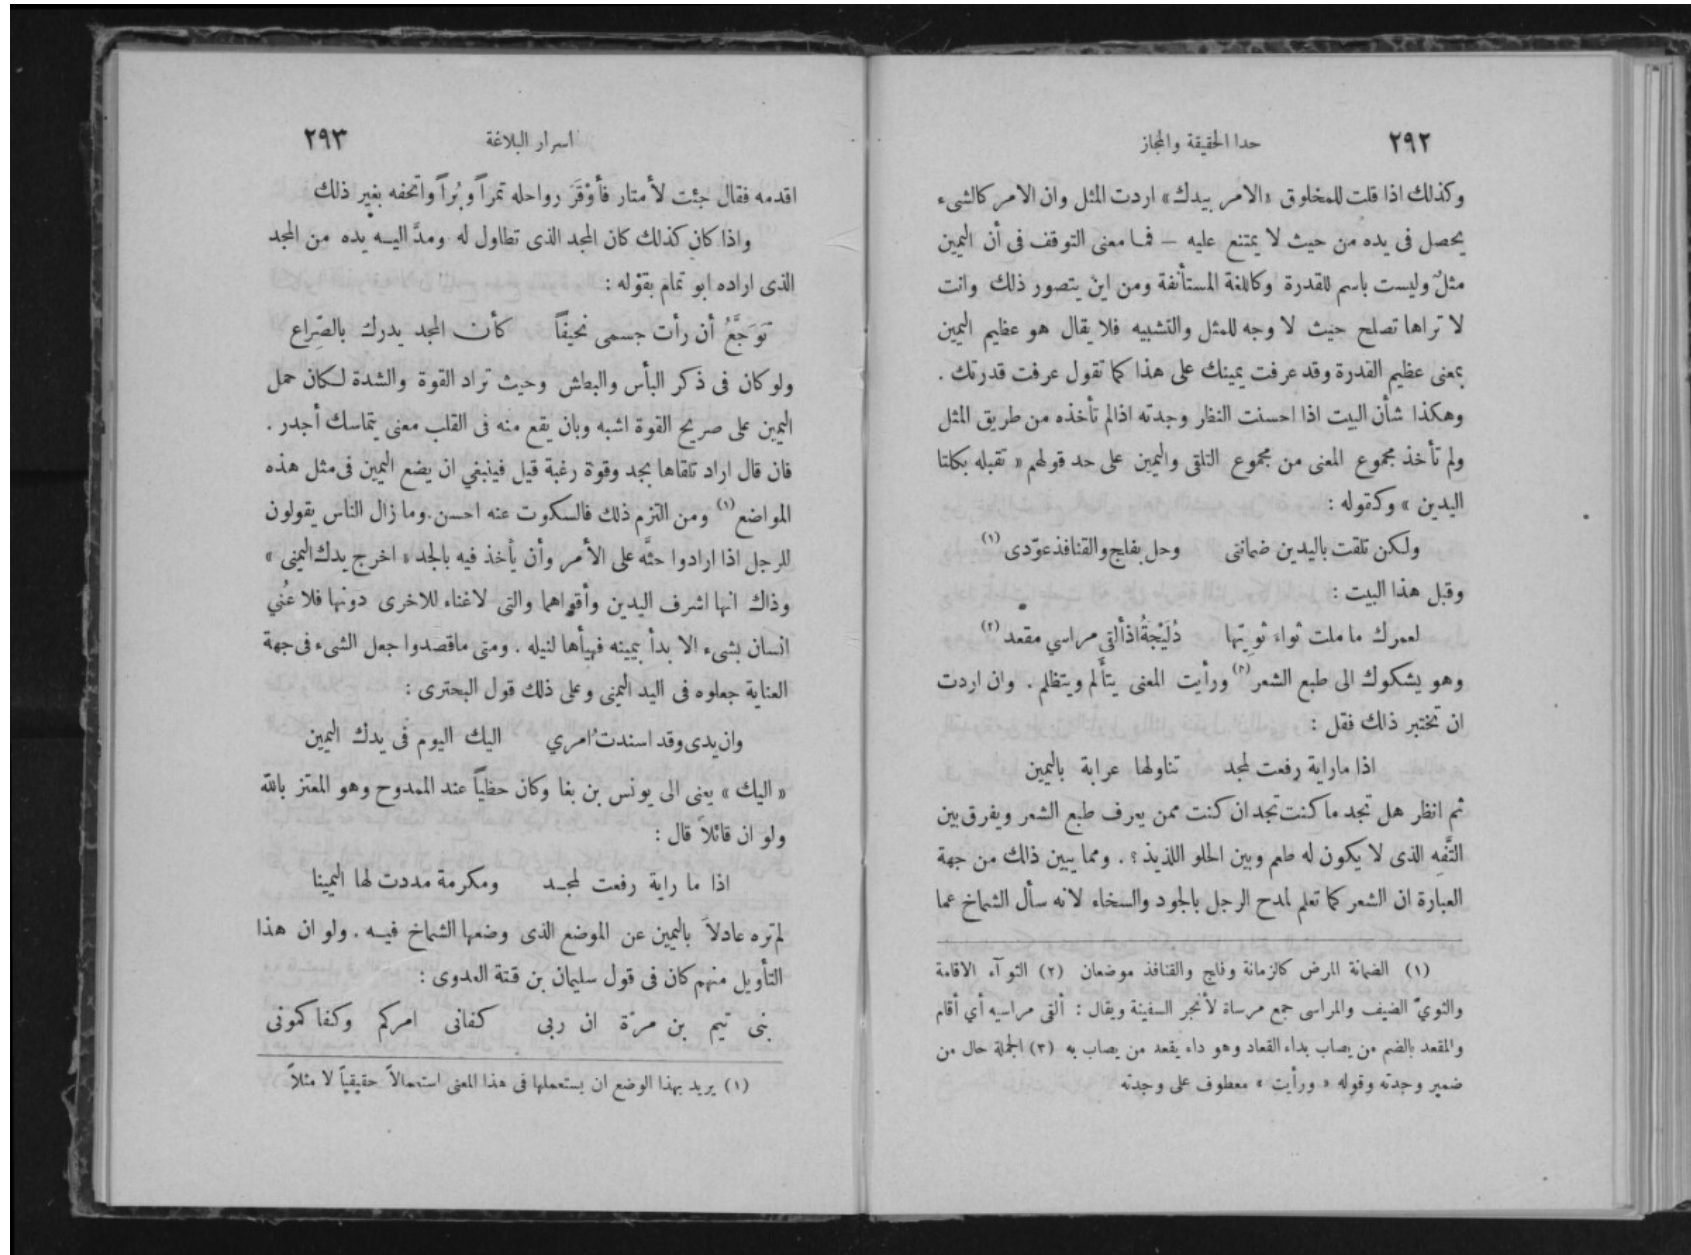 ٢٩٢
حدا الحقيقة والمجاز
وكذلك اذا قلت للمخلوق «الامر بيدك» اردت المثل وان الامر كالشىء
يحصل فى يده من حيث لا يمتنع عليه – فمـا معنى التوقف فى أن اليمين
مثلٌ وليست باسم للقدرة وكاللغة المستأنفة ومن اين يتصور ذلك وانت
لا تراها تصلح حيث لا وجه للمثل والتشبيه فلا يقال هو عظيم اليمين
بمعنى عظيم القدرة وقد عرفت يمينك على هذا كما تقول عرفت قدرتك .
وهكذا شأن البيت اذا احسنت النظر وجدته اذالم تأخذه من طريق المثل
ولم تأخذ مجموع المعنى من مجموع التلقى واليمين على حد قولهم « تقبله بكلتا
اليدين » وكقوله :
ولكن تلقت باليدين ضمانتى وحل بفلج والقنافذ عوّدى (١)
وقبل هذا البيت :
لعمرك ما ملت ثواءَ ثويّها دُلَيْجَةُ اذألقى مراسي مقعد (٢)
وهو يشكوك الى طبع الشعر (٣) ورأيت المعنى يتألم ويتظلم . وان اردت
ان تختبر ذلك فقل :
اذا ماراية رفعت لمجد تناولها عرابة باليمين
ثم انظر هل تجد ما كنت تجد ان كنت ممن يعرف طبع الشعر ويفرق بين
التَّفِه الذى لا يكون له طعم وبين الحلو اللذيذ ؟ . ومما يبين ذلك من جهة
العبارة ان الشعر كما تعلم لمدح الرجل بالجود والسخاء لانه سأل الشماخ عما
(١) الضمانة المرض كالزمانة وفلج والقنافذ موضعان (٢) الثوآء الاقامة
والثويّ الضيف والمراسى جمع مرساة لأنجر السفينة ويقال : ألقى مراسيه أي أقام
والمقعد بالضم من يصاب بداء القعاد وهو داء يقعد من يصاب به (٣) الجملة حال من
ضمير وجدته وقوله « ورأيت » معطوف على وجدته
اسرار البلاغة
٢٩٣
اقدمه فقال جئت لأمتار فأوْقَرَ رواحله تمراً وبُراً واتحفه بغير ذلك
واذا كان كذلك كان المجد الذى تطاول له ومدَّ اليـه يده من المجد
الذى اراده ابو تمام بقوْله :
تَوَجَّعُ أن رأت جسمى نحيفاً كأن المجد يدرك بالصِّراع
ولو كان فى ذكر البأس والبطش وحيث تراد القوة والشدة لـكان حمل
اليمين على صريح القوة اشبه وبان يقع منه فى القلب معنى يتماسك أجدر .
فان قال اراد تلقاها بجد وقوة رغبة قيل فينبغي ان يضع اليمين فى مثل هذه
المواضع (١) ومن التزم ذلك فالسكوت عنه احسن . وما زال الناس يقولون
للرجل اذا ارادوا حثَّه على الأمر وأن يأخذ فيه بالجد « اخرج يدك اليمنى »
وذاك انها اشرف اليدين وأقواهما والتى لاغناء للاخرى دونها فلا عُني
انسان بشىء الا بدأ بيمينه فهيأها لنيله . ومتى ماقصدوا جعل الشىء فى جهة
العناية جعلوه فى اليد اليمنى وعلى ذلك قول البحترى :
وان يدى وقد اسندت امري اليك اليوم فى يدك اليمين
« اليك » يعنى الى يونس بن بغا وكان حظياً عند الممدوح وهو المعتز بالله
ولو ان قائلاً قال :
اذا ما راية رفعت لمجـد ومكرمة مددت لها اليمينا
لم تره عادلاً باليمين عن الموضع الذى وضعها الشماخ فيـه . ولو ان هذا
التأويل منهم كان فى قول سليمان بن قتة العدوى :
بنى تيم بن مرّة ان ربى كفانى امركم وكفاكمونى
(١) يريد بهذا الوضع ان يستعملها فى هذا المعنى استعمالاً حقيقياً لا مثلاً